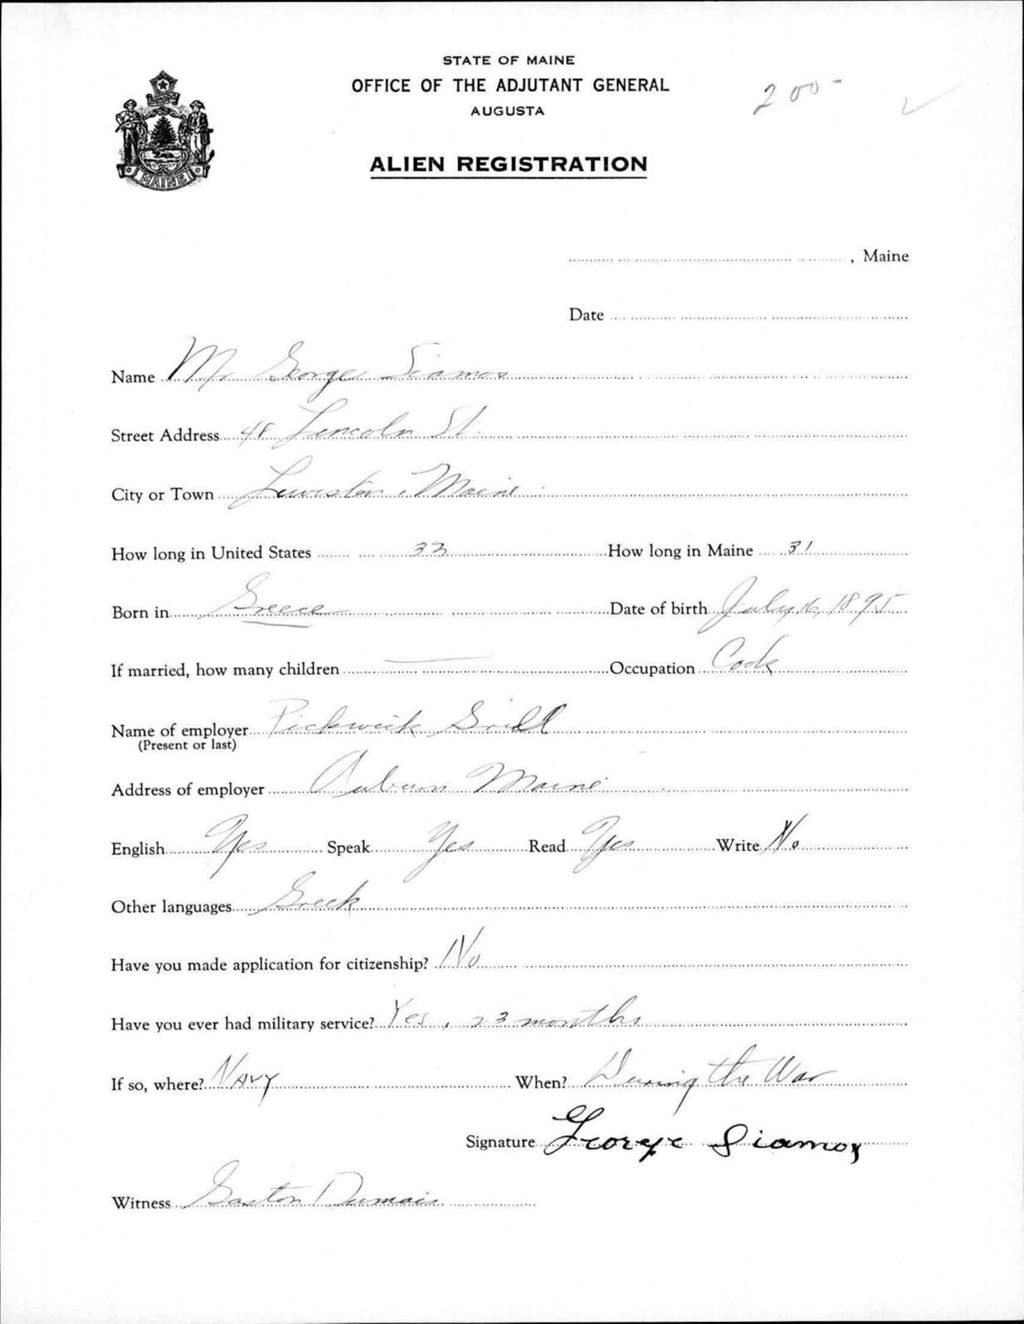 STATE OF MAINE
OFFICE OF THE ADJUTANT GENERAL
AUGUSTA
200-
ALIEN REGISTRATION
MAINE
, Maine
Date
Name Mr George Siamos
Street Address 48 Lincoln St.
City or Town Lewiston, Maine
How long in United States 33 How long in Maine 31
Born in Greece Date of birth July 16, 1895
If married, how many children — Occupation Cook
Name of employer Pickwick Grill
(Present or last)
Address of employer Auburn Maine
English Yes Speak Yes Read Yes Write No
Other languages Greek
Have you made application for citizenship? No
Have you ever had military service? Yes, 23 months
If so, where? Navy When? During the War
Signature George Siamos
Witness Gaston Dumais